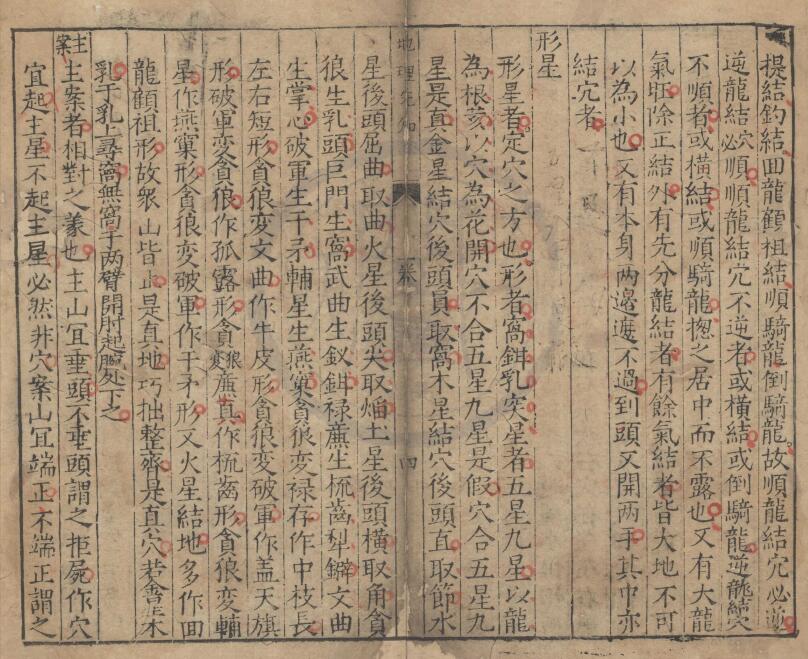 提結釣結回龍顧祖結順騎龍倒騎龍故順龍結穴必逆
逆龍結必順順龍結穴不逆者或橫結或倒騎龍逆龍結穴
不順者或橫結或順騎龍揔之居中而不露也又有大龍
氣旺除正結外有先分龍結者有餘氣結者皆大地不可
以為小也又有本身两邉遮不過到頭又開两手其中亦
結穴者
形星
形星者定穴之方也形者窩鉗乳突星者五星九星以龍
為根荄以穴為花開穴不合五星九星是假穴合五星九
星是真金星結穴後頭員取窩木星結穴後頭直取節水
星後頭屈曲取曲火星後頭尖取焰土星後頭橫取角貪
狼生乳頭巨門生窩武曲生釵鉗禄廉生梳齒犁鐴文曲
生掌心破軍生干矛輔星生燕窠貪狼变禄存作中枝長
左右短形貪狼变文曲作牛皮形貪狼变破軍作盖天旗
形破軍变貪狼作孤露形貪狼变廉真作梳齒形貪狼变輔
星作燕窠形貪狼变破軍作干矛形又火星結地多作回
龍顧祖形故衆山皆止是真地巧拙整齊是真穴若木
乳于乳上尋窩無窩于两臂開肘起處下之
主案
主案者相對之義也主山冝垂頭不垂頭謂之拒屍作穴
宜起主星不起主星必然非穴案山冝端正不端正謂之
地理
卷
四